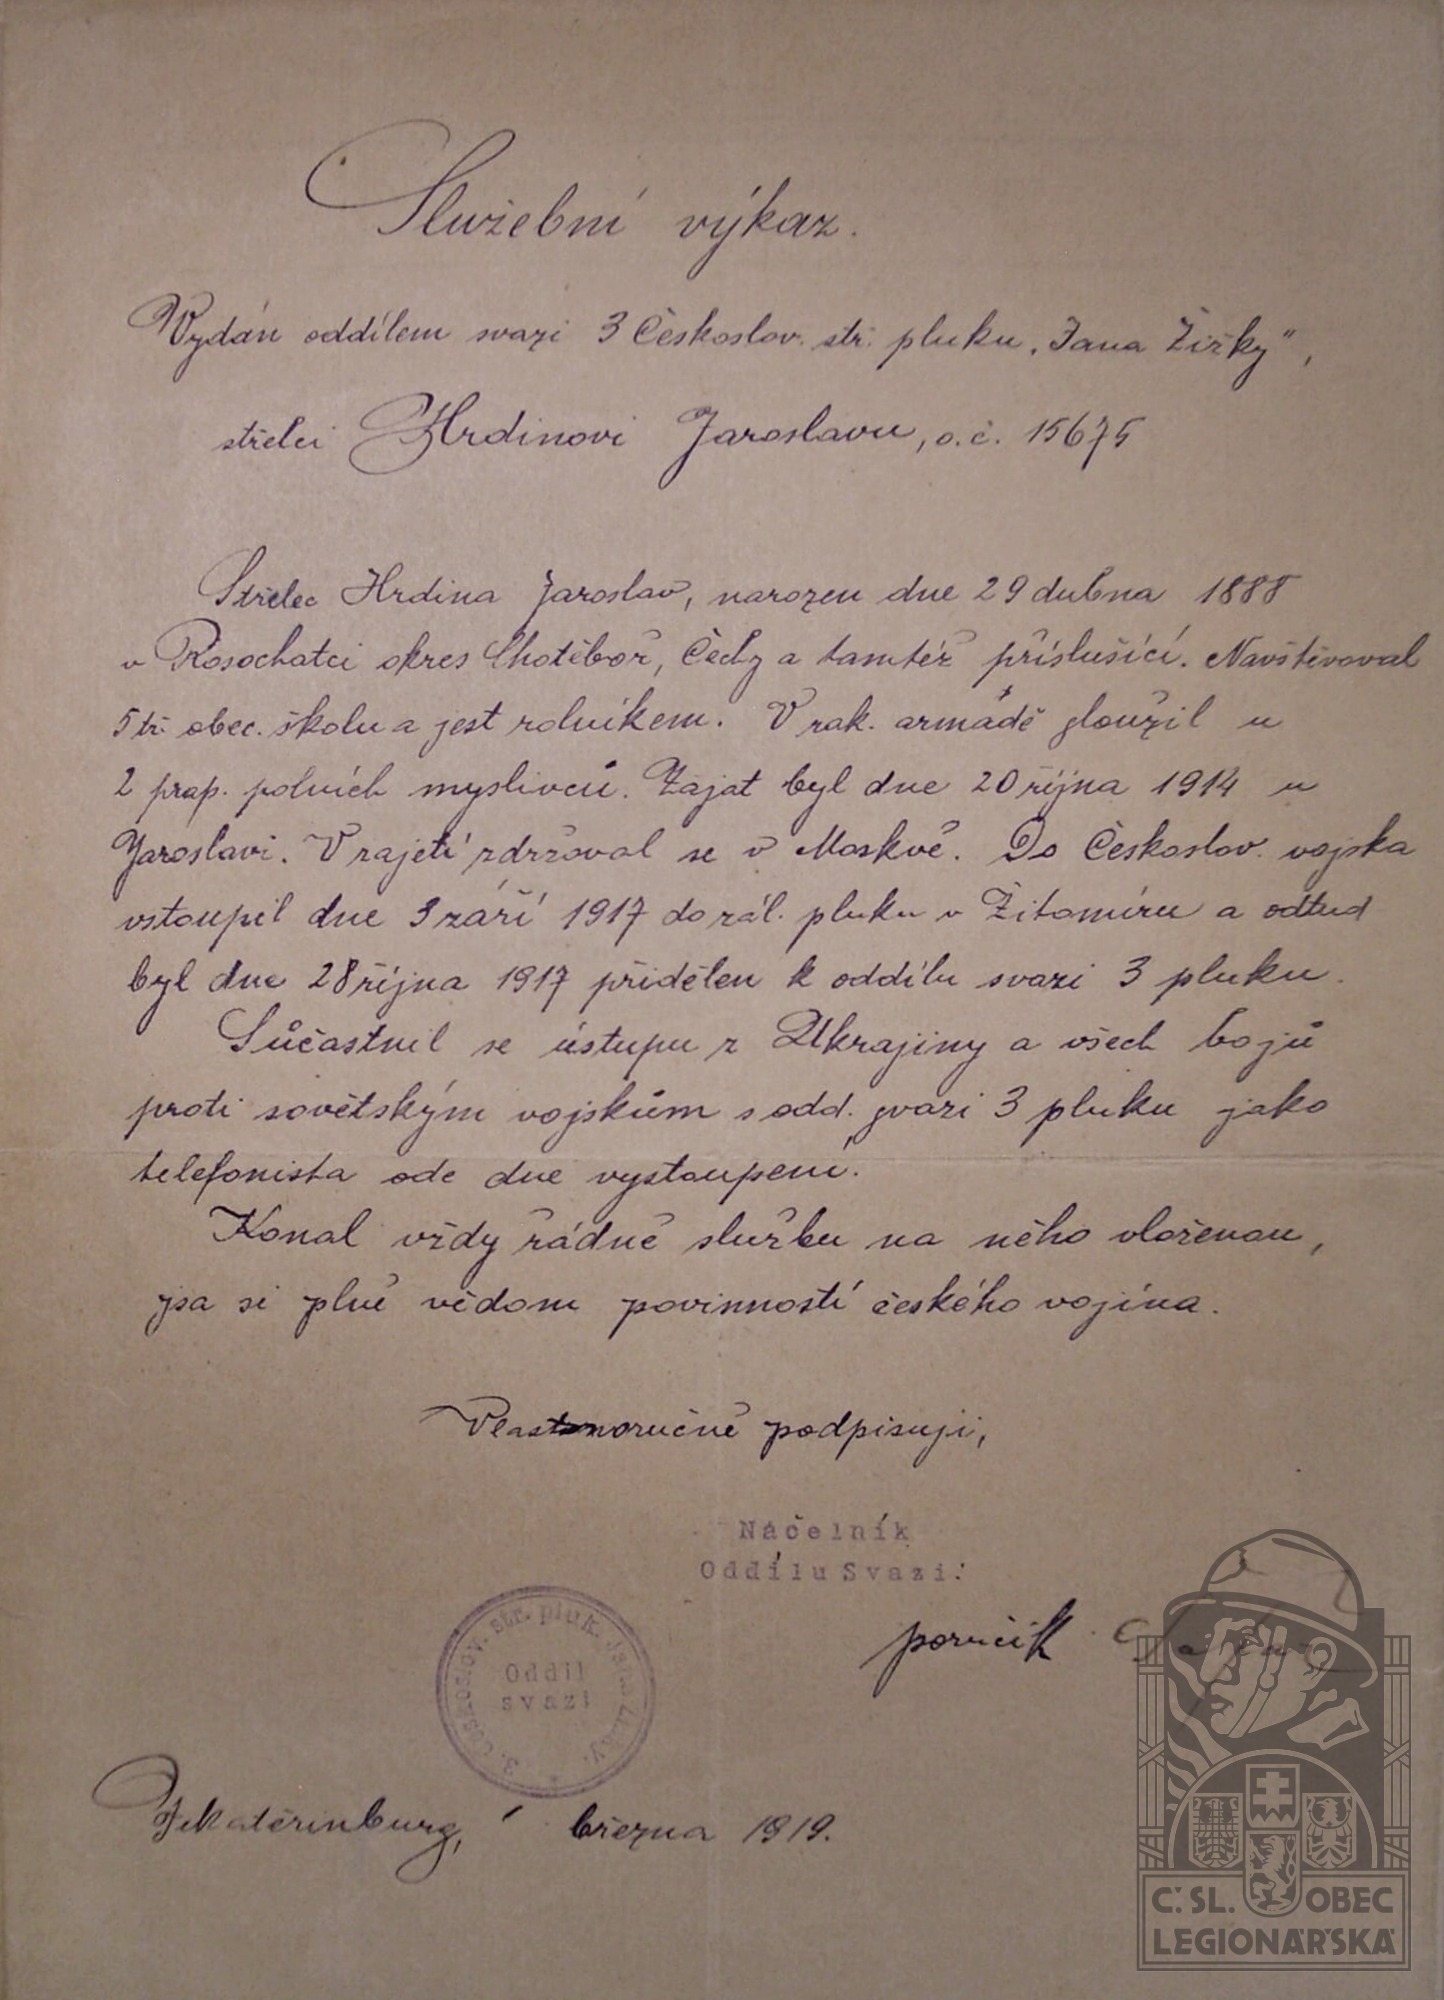 Služební výkaz.
Vydán oddílem svazi 3 Českoslov. stř. pluku „Jana Žižky“,
střelci Hrdinovi Jaroslavu, o.č. 15675
Střelec Hrdina Jaroslav, narozen dne 29 dubna 1888
v Rosochatci okres Chotěboř, Čechy a tamtéž příslušící. Navštěvoval
5 tř. obec. školu a jest rolníkem. V rak. armádě sloužil u
2 prap. polních myslivců. Zajat byl dne 20 října 1914 u
Jaroslavi. V zajetí zdržoval se v Moskvě. Do Českoslov. vojska
vstoupil dne 3 září 1917 do zál. pluku v Žitomíru a odtud
byl dne 28 října 1917 přidělen k oddílu svazi 3 pluku.
Súčastnil se ústupu z Ukrajiny a všech bojů
proti sovětským vojskům s odd. svazi 3 pluku jako
telefonista ode dne vystoupení.
Konal vždy řádně službu na něho vloženou,
jsa si plně vědom povinností českého vojína.
Vlastnoručně podpisuji,
Náčelník
Oddílu Svazi.
poručík
3. Českoslov. str. pluk. Jana Žižky.
Oddíl
svazi
Jekatěrinburg, března 1919.
Č. SL. OBEC
LEGIONÁŘSKÁ